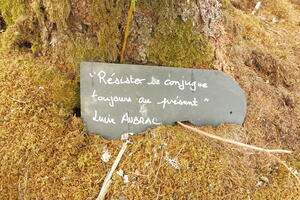 "Résister se conjugue
toujours au présent"
Lucie AUBRAC